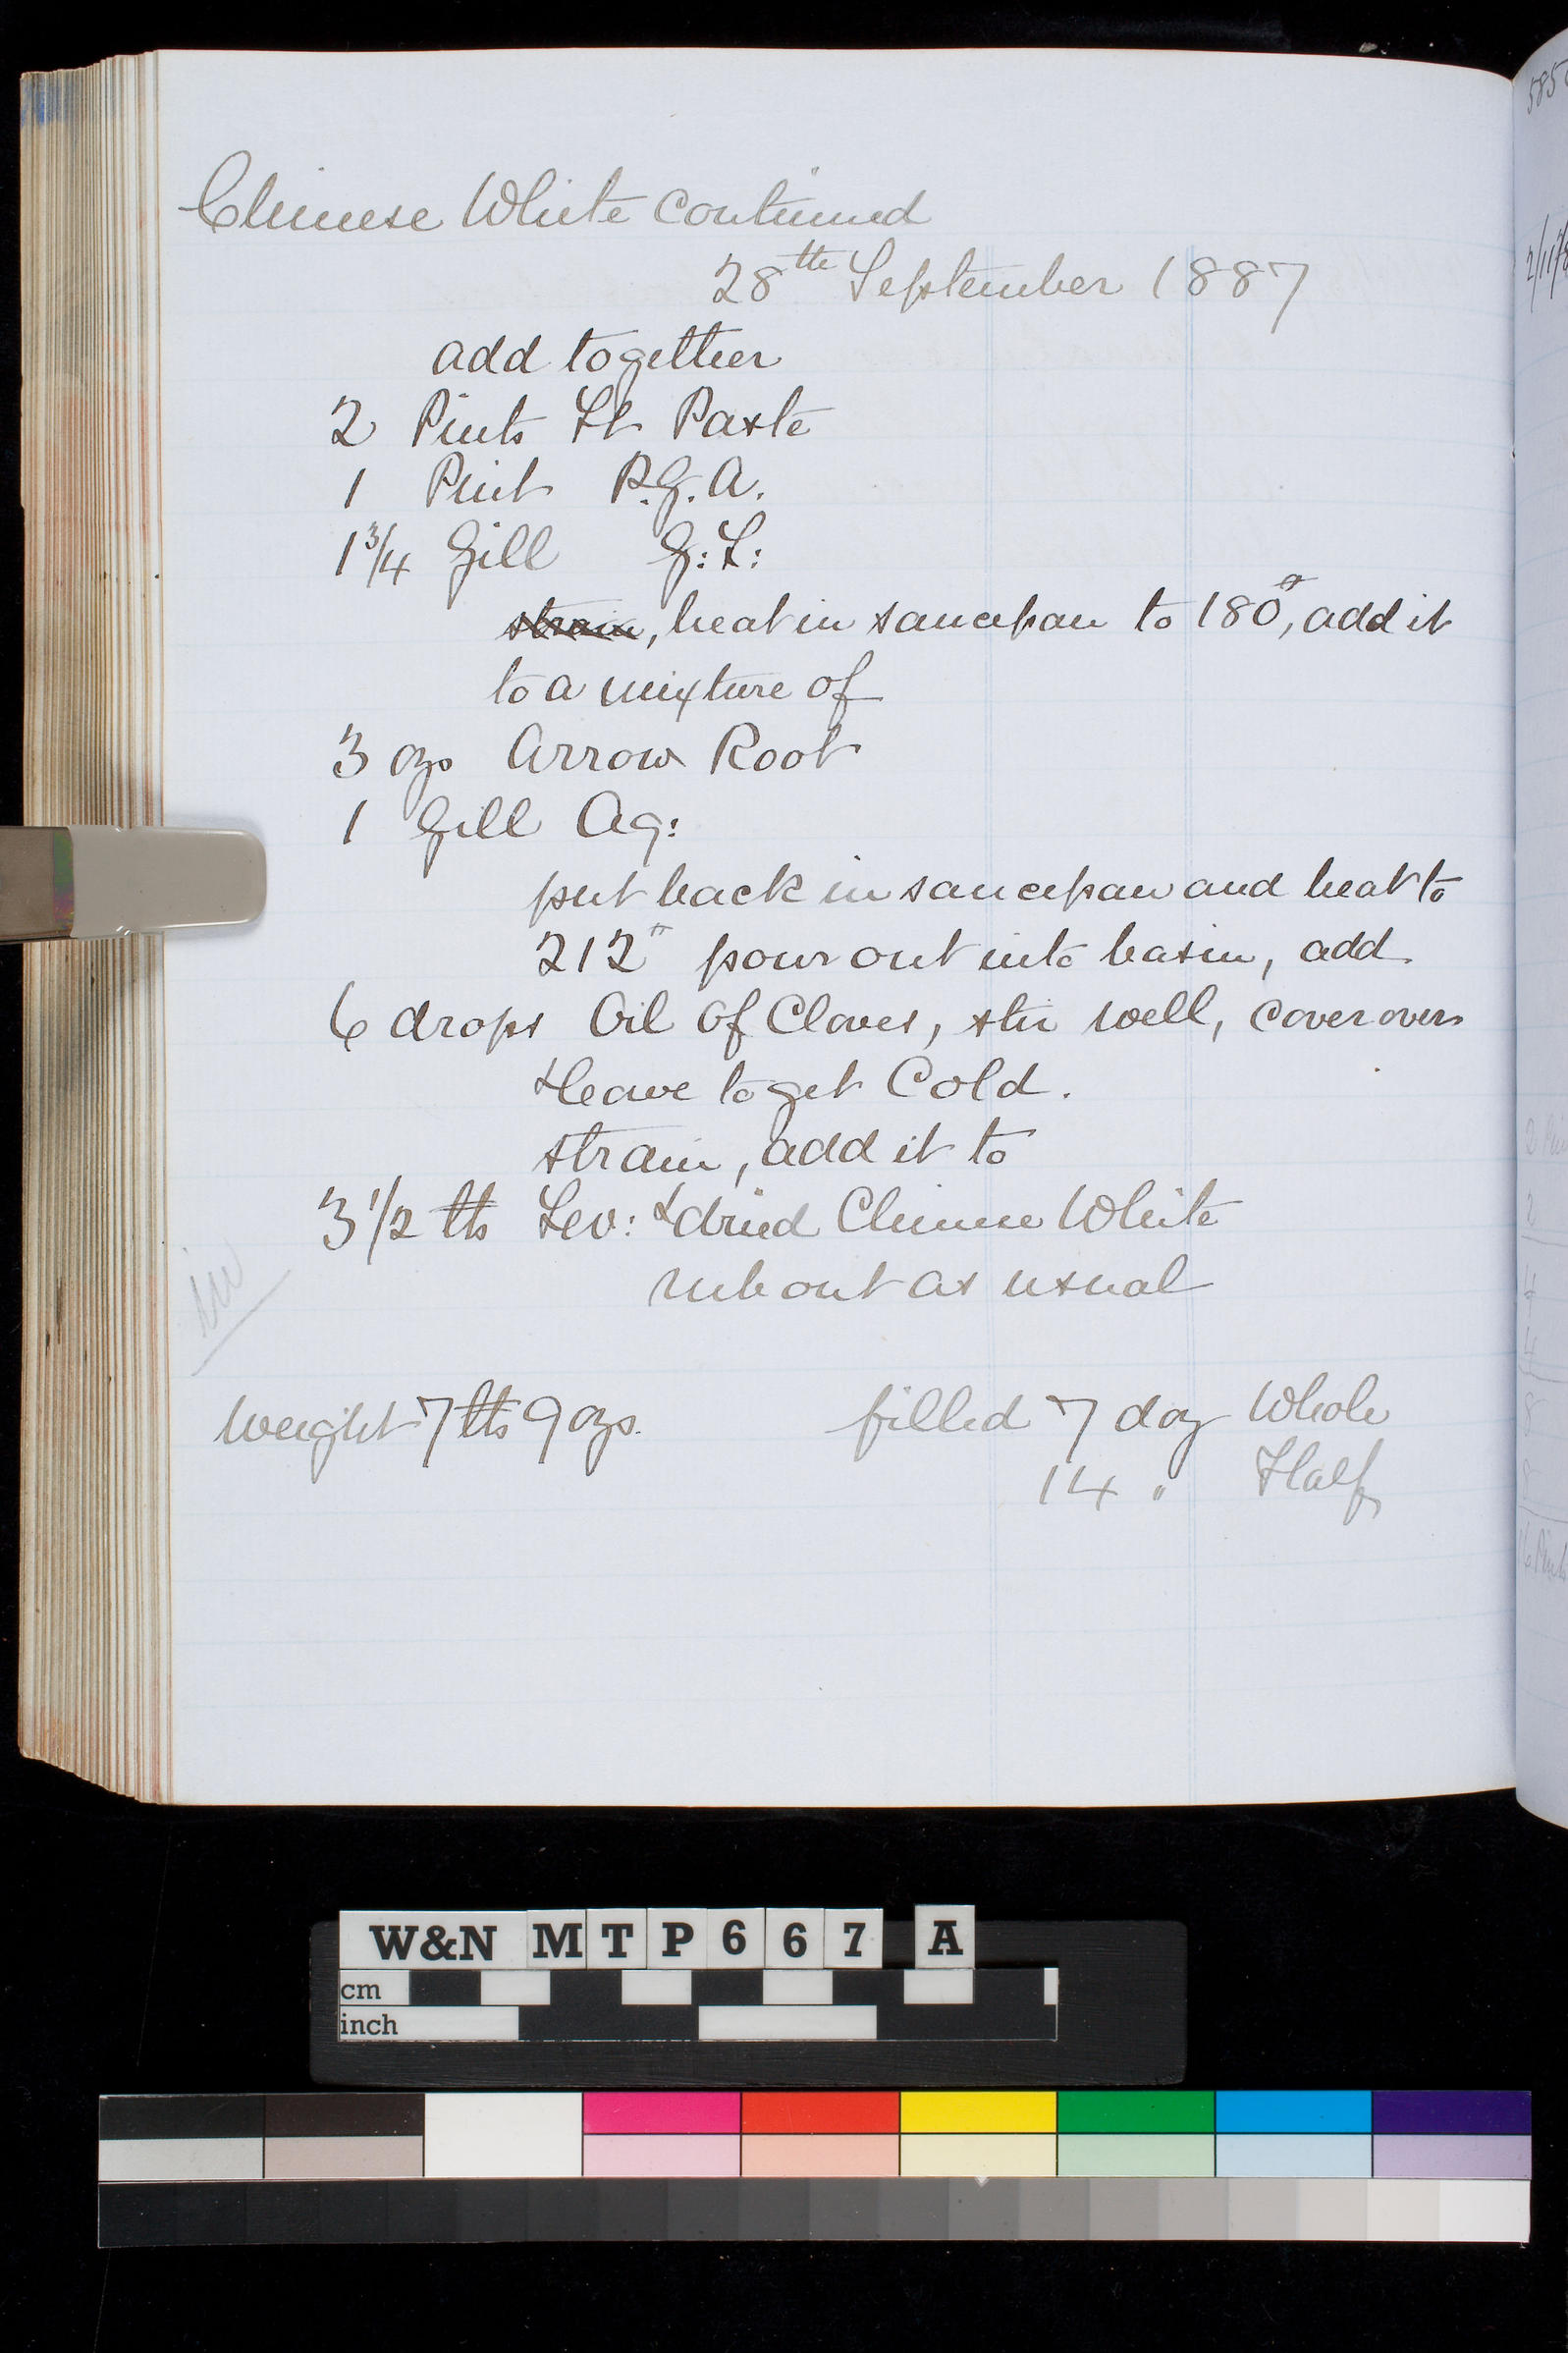 Chinese White continued
28th September 1887
add together
2 Pints St Paste
1 Pint P.G.A.
1 3/4 Gill G:S:
strain, heat in saucepan to 180°, add it
to a mixture of
3 ozs Arrow Root
1 Gill Aq:
put back in saucepan and heat to
212° pour out into basin, add
6 drops Oil of Cloves, stir well, cover over
& leave to get Cold.
strain, add it to
3 1/2 lbs Lev: & dried Chinese White
rub out as usual
in
Weight 7 lbs 9 ozs.
filled 7 doz Whole
14 " Half
W&N MTP667 A
cm
inch